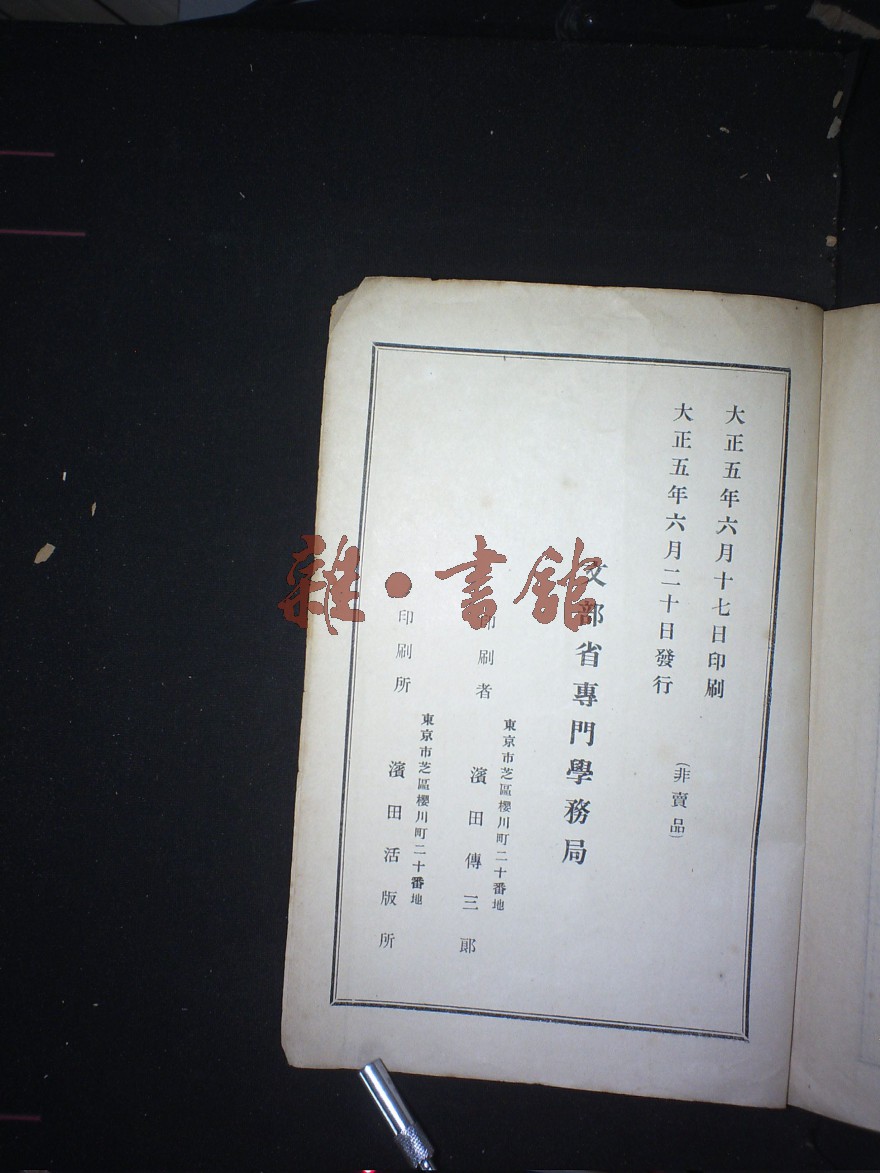 大正五年六月十七日印刷
大正五年六月二十日發行
(非賣品)
文部省專門學務局
東京市芝區櫻川町二十番地
印刷者 濱田傳三郎
東京市芝區櫻川町二十番地
印刷所 濱田活版所
雜·書館